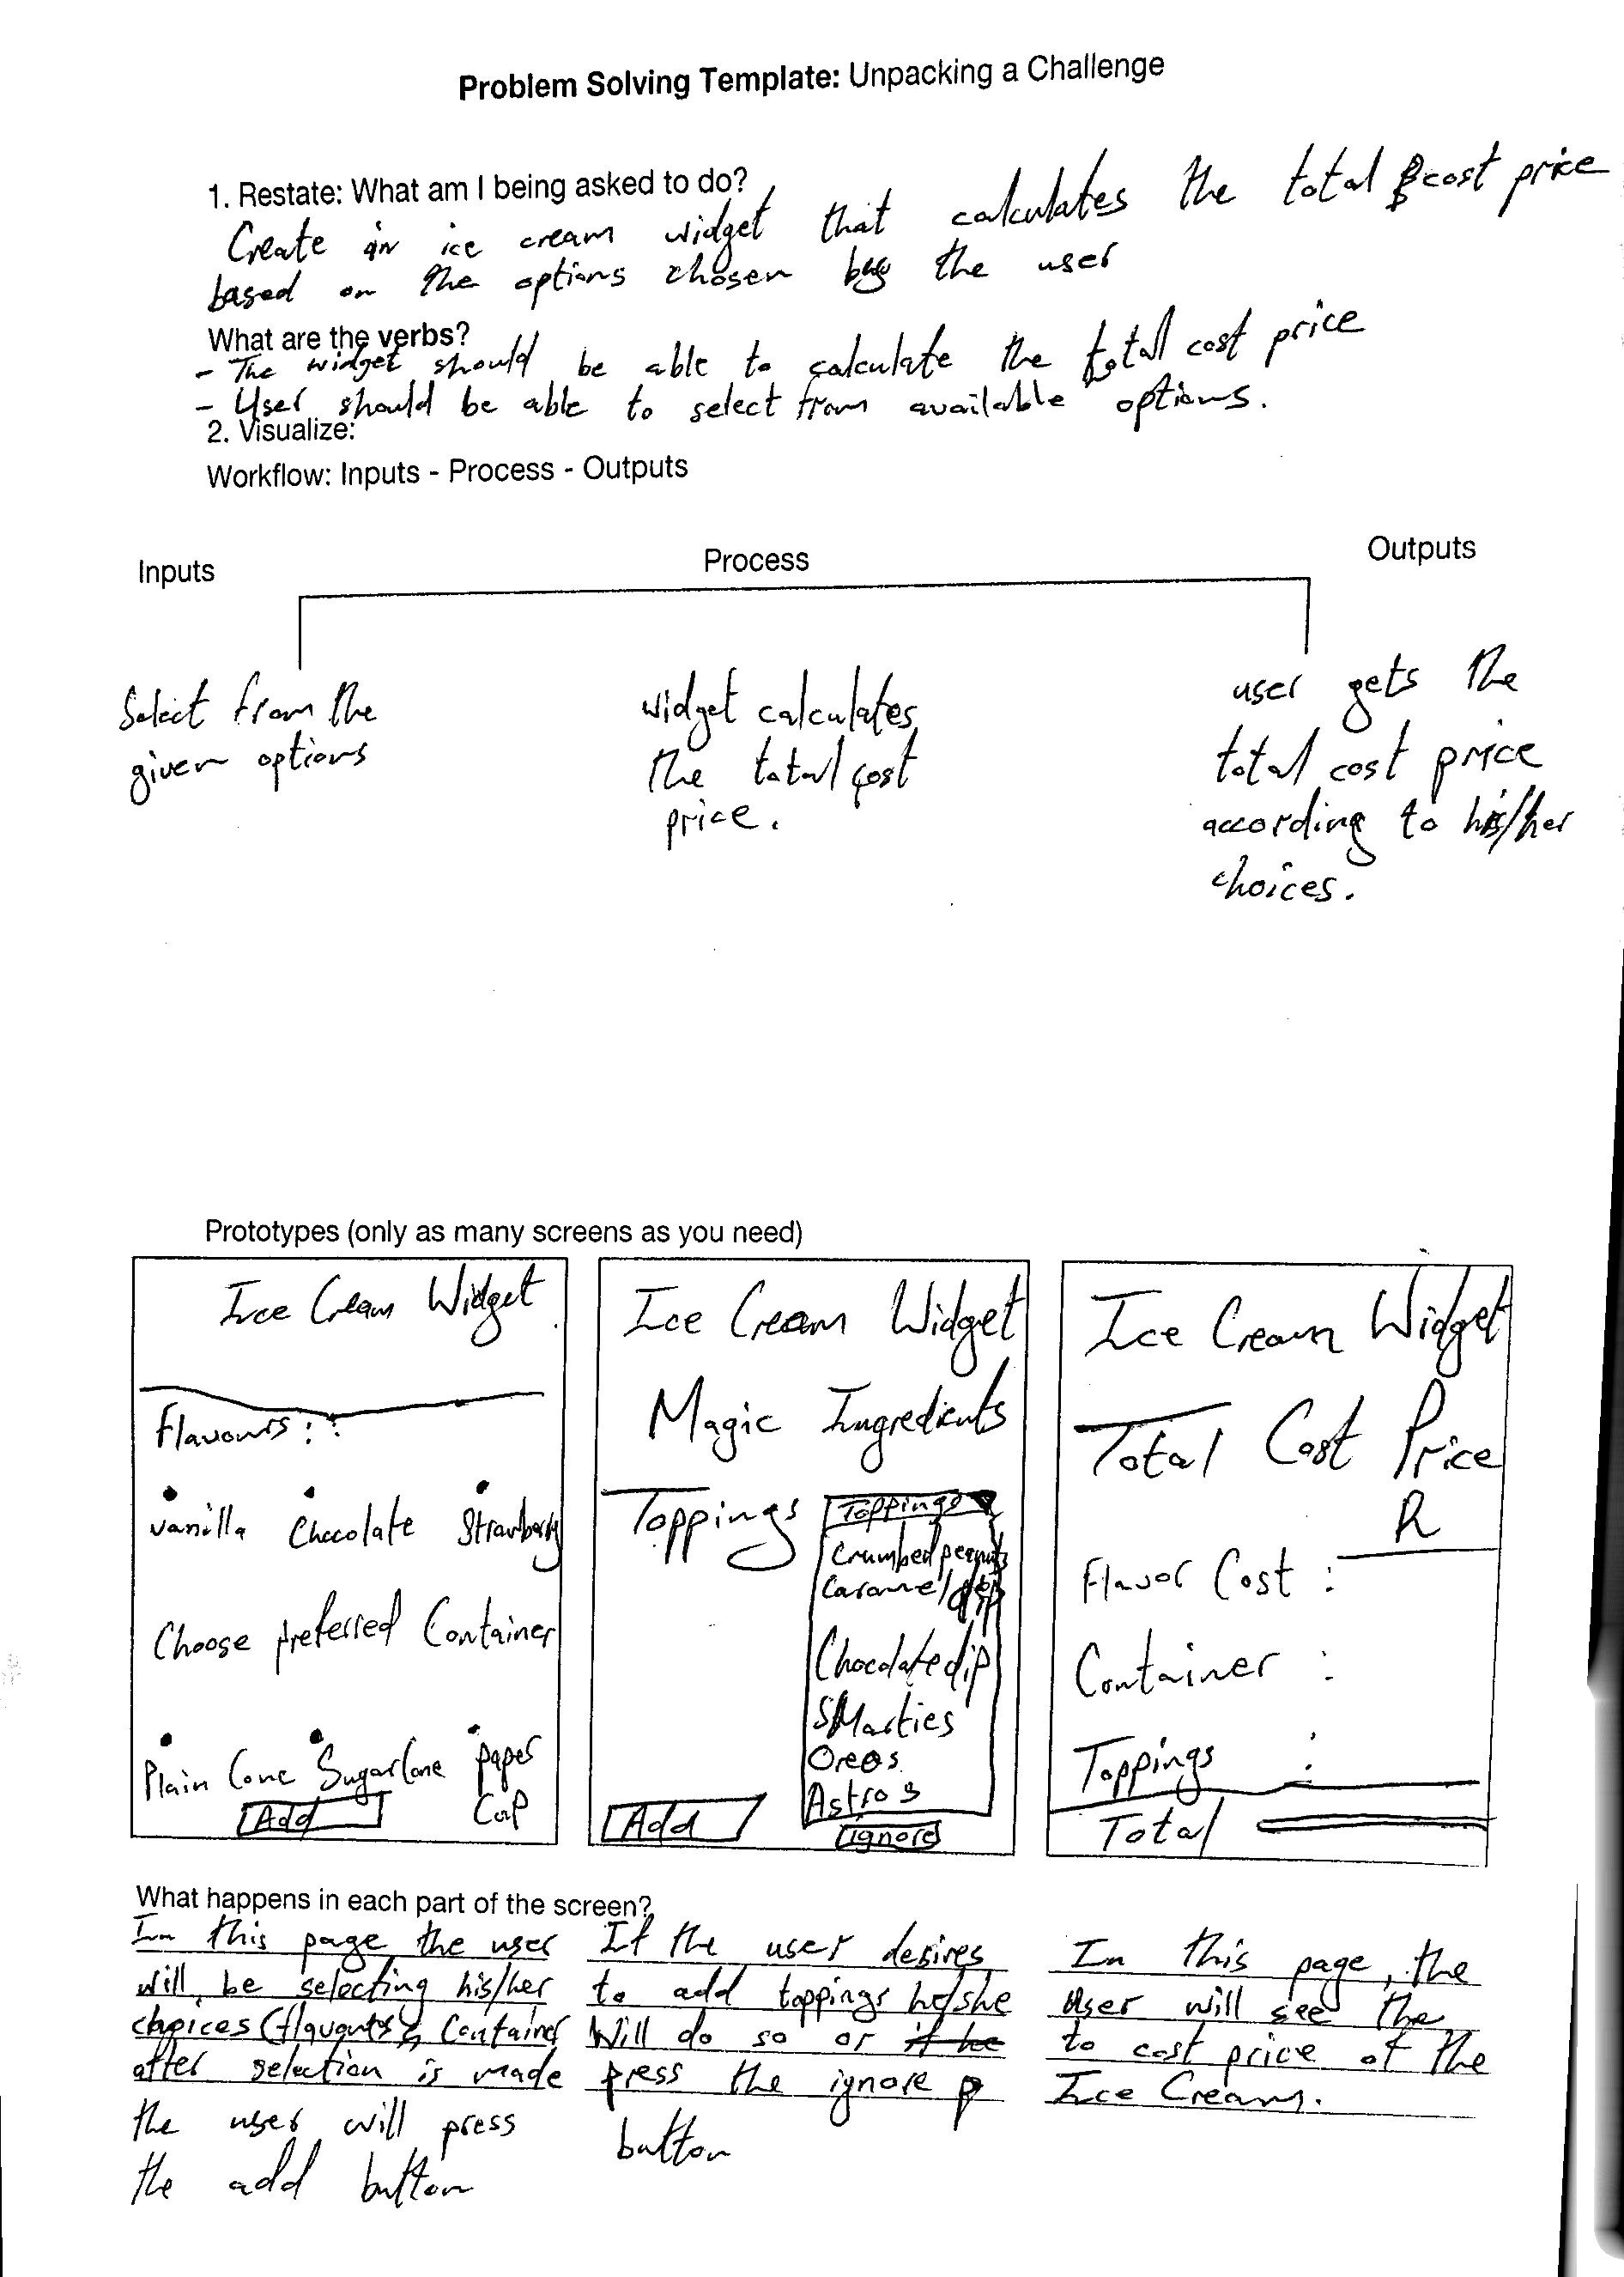 Problem Solving Template: Unpacking a Challenge
1. Restate: What am I being asked to do?
Create an ice cream widget that calculates the total cost price
based on the options chosen by the user
What are the verbs?
- The widget should be able to calculate the total cost price
- User should be able to select from available options.
2. Visualize:
Workflow: Inputs - Process - Outputs
Inputs
Process
Outputs
Select from the
given options
widget calculates
the total cost
price.
user gets the
total cost price
according to his/her
choices.
Prototypes (only as many screens as you need)
Ice Cream Widget
Flavours :
Vanilla Chocolate Strawberry
Choose preferred Container
Plain Cone Sugar Cone paper
Cup
Add
Ice Cream Widget
Magic Ingredients
Toppings
Toppings
Crumbed peanuts
Caramel dip
Chocolate dip
SMarties
Oreos
Astros
Add
ignore
Ice Cream Widget
Total Cost Price
R
Flavor Cost :
Container :
Toppings :
Total
What happens in each part of the screen?
In this page the user
will be selecting his/her
choices (flavours & Container
after selection is made
the user will press
the add button
If the user desires
to add toppings he/she
Will do so or if he
press the ignore p
button
In this page, the
User will see the
to cost price of the
Ice Cream.